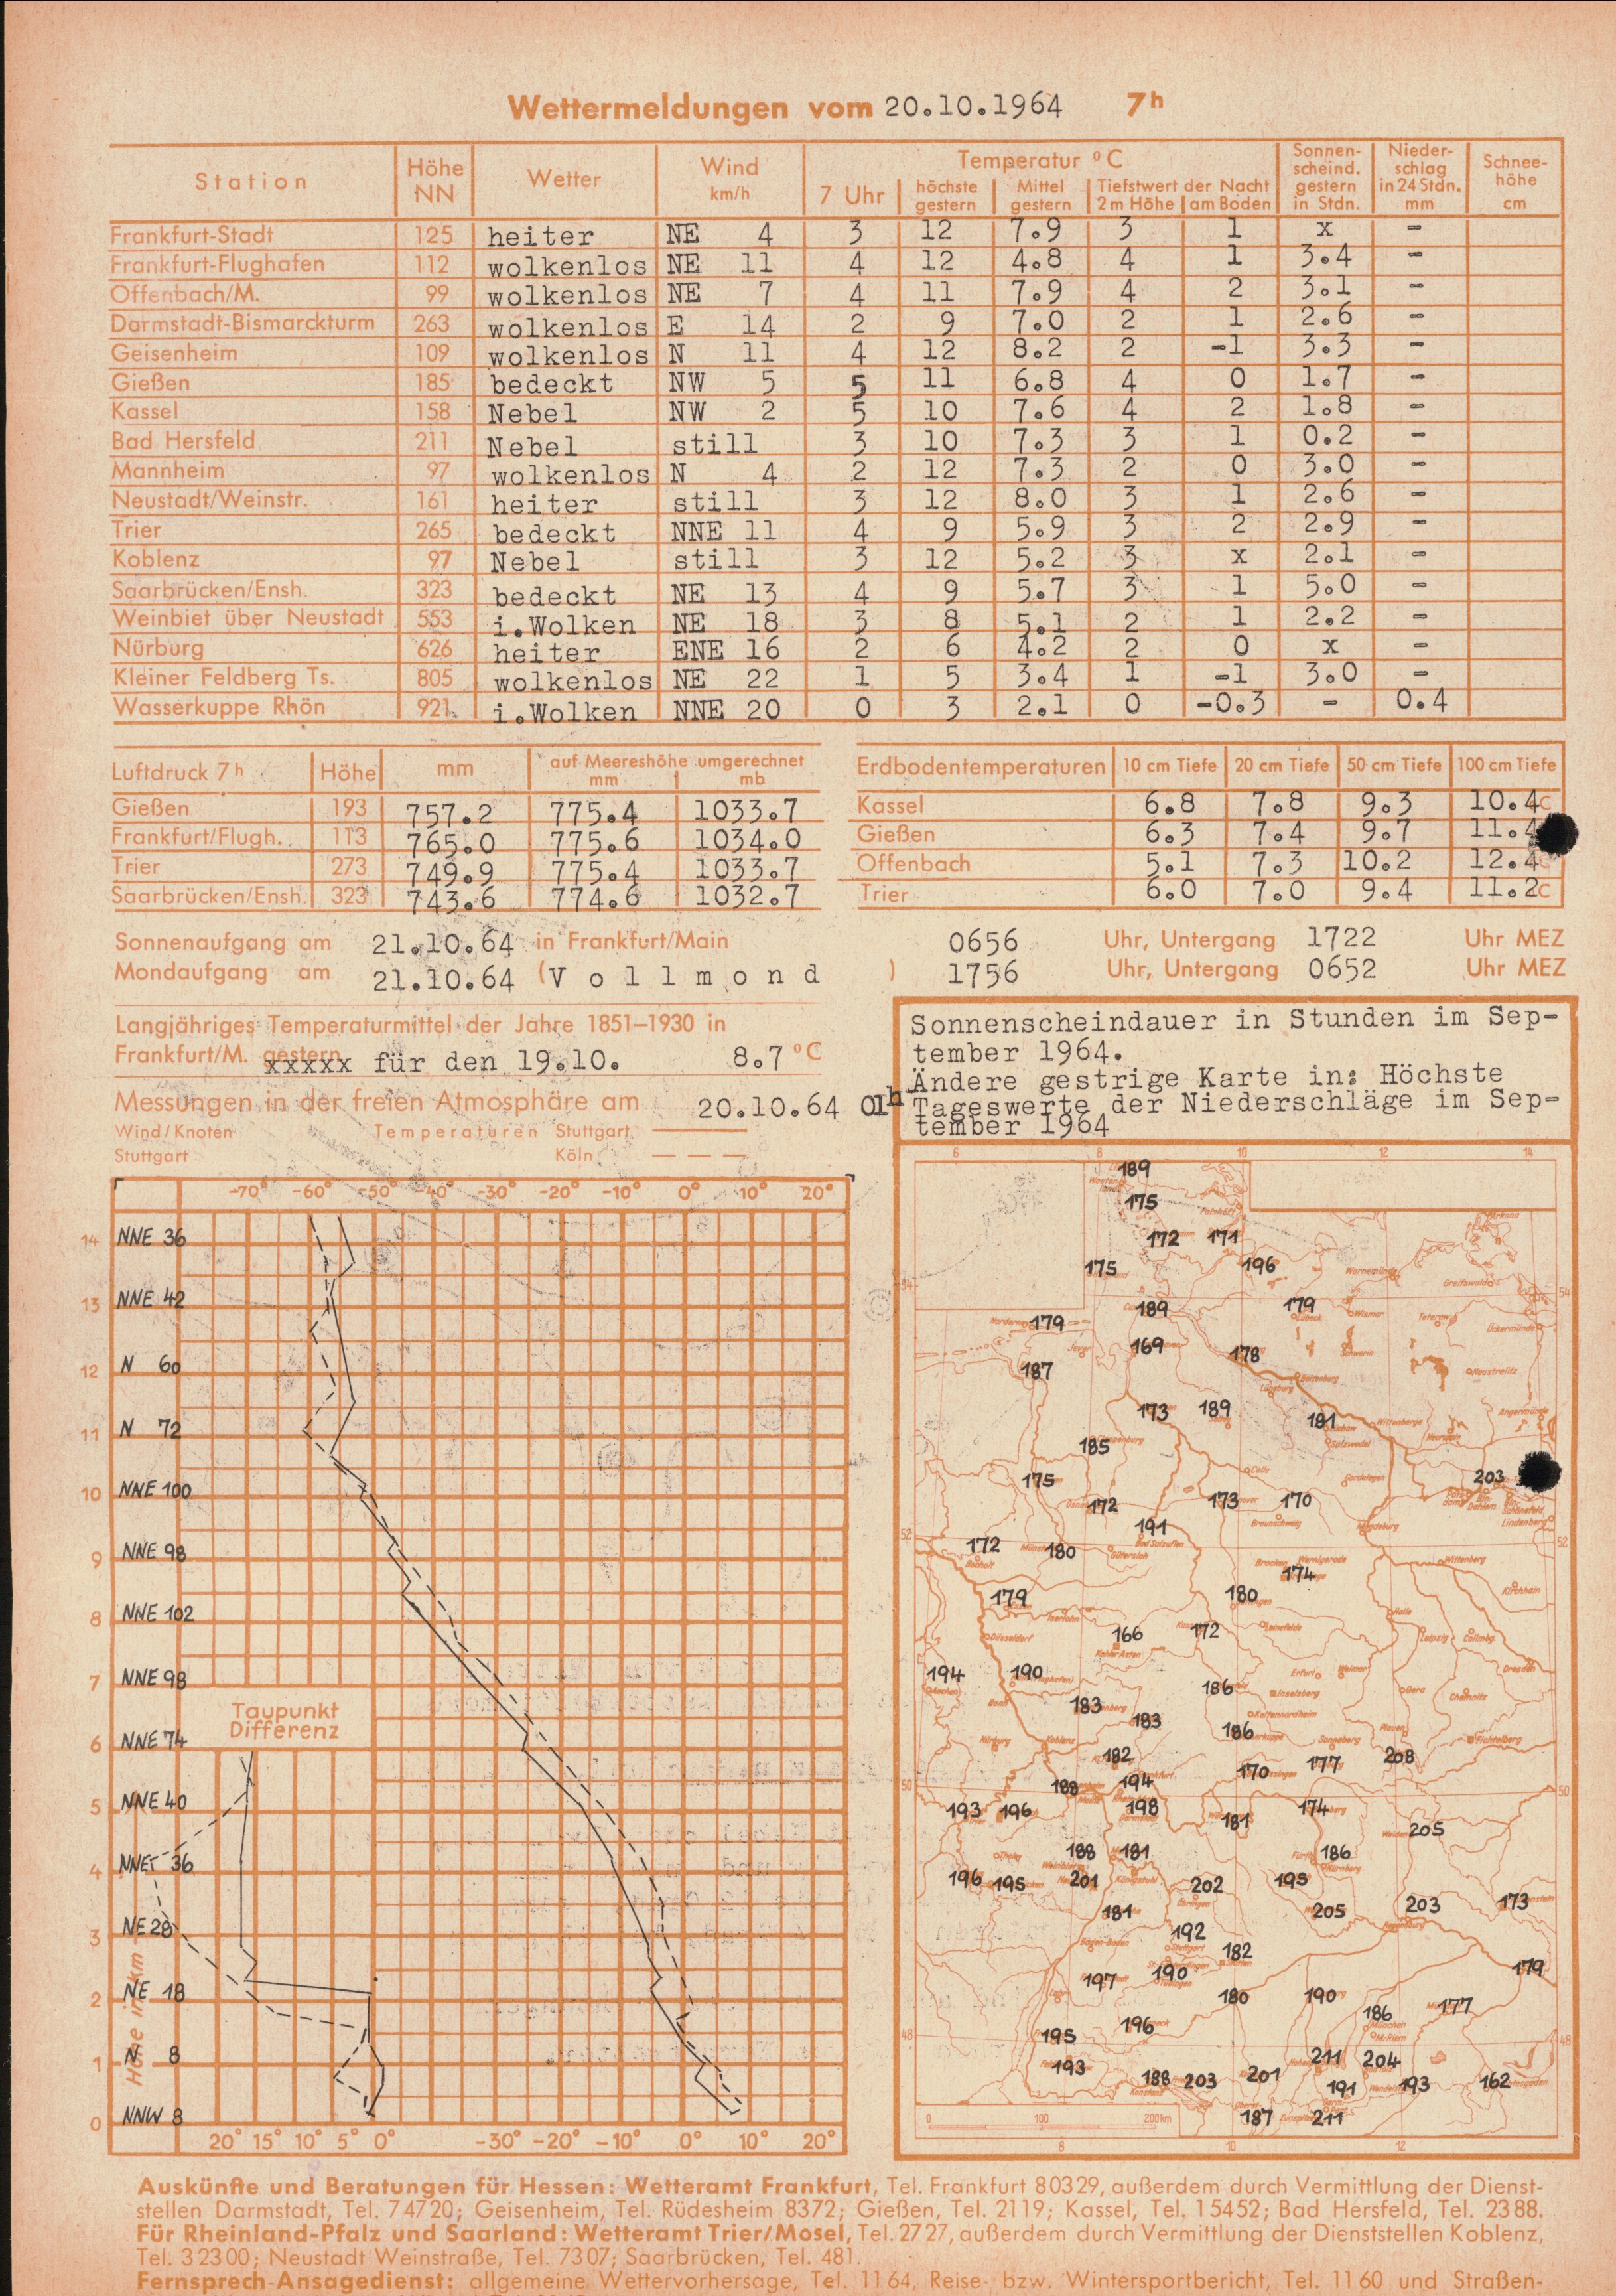 Wettermeldungen vom 20.10.1964 7h
Station Höhe NN Wetter Wind km/h Temperatur °C 7 Uhr höchste gestern Mittel gestern Tiefstwert der Nacht 2 m Höhe am Boden Sonnen-scheind. gestern in Stdn. Nieder-schlag in 24 Stdn. mm Schnee-höhe cm
Frankfurt-Stadt 125 heiter NE 4 3 12 7.9 3 1 x -
Frankfurt-Flughafen 112 wolkenlos NE 11 4 12 4.8 4 1 3.4 -
Offenbach/M. 99 wolkenlos NE 7 4 11 7.9 4 2 3.1 -
Darmstadt-Bismarckturm 263 wolkenlos E 14 2 9 7.0 2 1 2.6 -
Geisenheim 109 wolkenlos N 11 4 12 8.2 2 -1 3.3 -
Gießen 185 bedeckt NW 5 5 11 6.8 4 0 1.7 -
Kassel 158 Nebel NW 2 5 10 7.6 4 2 1.8 -
Bad Hersfeld 211 Nebel still 3 10 7.3 3 1 0.2 -
Mannheim 97 wolkenlos N 4 2 12 7.3 2 0 3.0 -
Neustadt/Weinstr. 161 heiter still 3 12 8.0 3 1 2.6 -
Trier 265 bedeckt NNE 11 4 9 5.9 3 2 2.9 -
Koblenz 97 Nebel still 3 12 5.2 3 x 2.1 -
Saarbrücken/Ensh. 323 bedeckt NE 13 4 9 5.7 3 1 5.0 -
Weinbiet über Neustadt 553 i.Wolken NE 18 3 8 5.1 2 1 2.2 -
Nürburg 626 heiter ENE 16 2 6 4.2 2 0 x -
Kleiner Feldberg Ts. 805 wolkenlos NE 22 1 5 3.4 1 -1 3.0 -
Wasserkuppe Rhön 921 i.Wolken NNE 20 0 3 2.1 0 -0.3 - 0.4
Luftdruck 7h Höhe mm auf Meereshöhe umgerechnet mm mb
Gießen 193 757.2 775.4 1033.7
Frankfurt/Flugh. 113 765.0 775.6 1034.0
Trier 273 749.9 775.4 1033.7
Saarbrücken/Ensh. 323 743.6 774.6 1032.7
Erdbodentemperaturen 10 cm Tiefe 20 cm Tiefe 50 cm Tiefe 100 cm Tiefe
Kassel 6.8 7.8 9.3 10.4C
Gießen 6.3 7.4 9.7 11.4
Offenbach 5.1 7.3 10.2 12.4C
Trier 6.0 7.0 9.4 11.2C
Sonnenaufgang am 21.10.64 in Frankfurt/Main 0656 Uhr, Untergang 1722 Uhr MEZ
Mondaufgang am 21.10.64 (V o l l m o n d ) 1756 Uhr, Untergang 0652 Uhr MEZ
Langjähriges Temperaturmittel der Jahre 1851–1930 in
Frankfurt/M. gestern xxxxx für den 19.10. 8.7 °C
Messungen in der freien Atmosphäre am 20.10.64 01h
Wind/Knoten Temperaturen Stuttgart
Stuttgart Köln
Sonnenscheindauer in Stunden im Sep-
tember 1964.
Ändere gestrige Karte in: Höchste
Tageswerte der Niederschläge im Sep-
tember 1964
-70° -60° -50° -40° -30° -20° -10° 0° 10° 20°
14 NNE 36
13 NNE 42
12 N 60
11 N 72
10 NNE 100
9 NNE 98
8 NNE 102
7 NNE 98
Taupunkt
Differenz
6 NNE 74
5 NNE 40
4 NNE 36
3 NE 28
2 NE 18
1 N 8
0 NNW 8
Höhe in km
20° 15° 10° 5° 0° -30° -20° -10° 0° 10° 20°
6 8 10 12 14
189
175
172 171
175 196
54 54
189 179
179
169 178
187
173 189 181
185
175 203
172 173 170
191
52 52
172 180
174
179 180
166 172
194 190
186
183 183
186
182 177 208
170
50 50
188 194
193 196 198 174
181 205
188 181 186
196 195 201 202 195
181 205 203 173
192
182
197 190 179
180 190
186 177
48 48
195 196
193 211 204
188 203 201 191 193 162
187 211
0 100 200 km
8 10 12
Auskünfte und Beratungen für Hessen: Wetteramt Frankfurt, Tel. Frankfurt 80329, außerdem durch Vermittlung der Dienst-
stellen Darmstadt, Tel. 74720; Geisenheim, Tel. Rüdesheim 8372; Gießen, Tel. 2119; Kassel, Tel. 15452; Bad Hersfeld, Tel. 2388.
Für Rheinland-Pfalz und Saarland: Wetteramt Trier/Mosel, Tel. 2727, außerdem durch Vermittlung der Dienststellen Koblenz,
Tel. 32300; Neustadt Weinstraße, Tel. 7307; Saarbrücken, Tel. 481.
Fernsprech-Ansagedienst: allgemeine Wettervorhersage, Tel. 1164, Reise- bzw. Wintersportbericht, Tel. 1160 und Straßen-